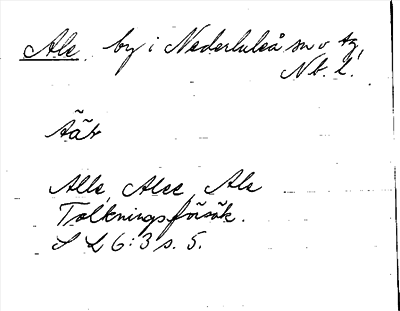 Ale, by i Nederluleå sn o tg,
Nb. L.
Alle, Alee, Ale
Tolkningsförsök.
S L 6:3 s. 5.